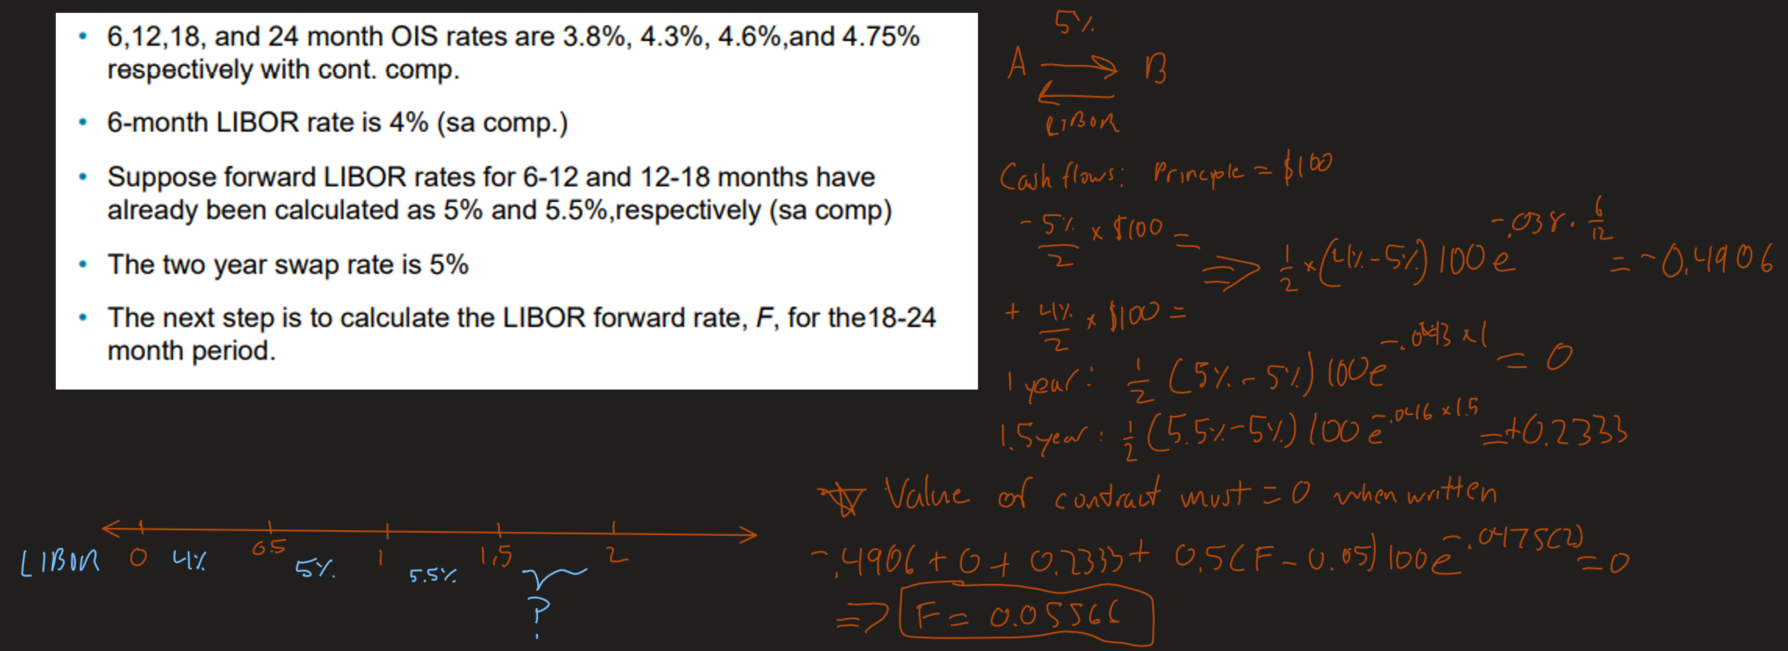 • 6,12,18, and 24 month OIS rates are 3.8%, 4.3%, 4.6%,and 4.75%
respectively with cont. comp.
• 6-month LIBOR rate is 4% (sa comp.)
• Suppose forward LIBOR rates for 6-12 and 12-18 months have
already been calculated as 5% and 5.5%,respectively (sa comp)
• The two year swap rate is 5%
• The next step is to calculate the LIBOR forward rate, F, for the18-24
month period.
5%
A → B
←
LIBOR
Cash flows: Principle = $100
- 5%/2 × $100 =
⇒ 1/2 × (4% - 5%) 100 e^-.038 · 6/12 = -0.4906
+ 4%/2 × $100 =
1 year: 1/2 (5% - 5%) 100e^-.043 × 1 = 0
1.5 year: 1/2 (5.5% - 5%) 100 e^-.0416 × 1.5 = +0.2333
☆ Value of contract must = 0 when written
-.4906 + 0 + 0.2333 + 0.5(F - 0.05) 100 e^-.0475(2) = 0
⇒ F = 0.05566
0 0.5 1 1.5 2
LIBOR 4% 5% 5.5%
?